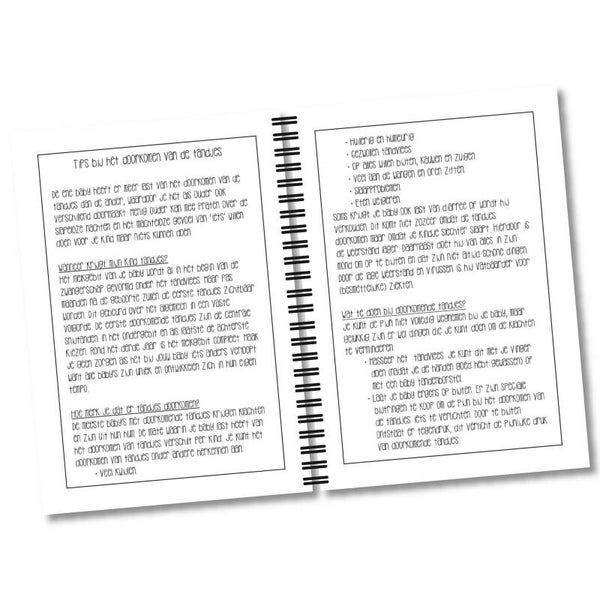 Tips bij het doorkomen van de tandjes
De ene baby heeft er meer last van het doorkomen van de
tandjes dan de ander, waardoor je het als ouder ook
verschillend doormaakt. Menig ouder kan mee praten over de
slapeloze nachten en het machteloze gevoel van 'iets' willen
doen voor je kind maar 'niets' kunnen doen.
Wanneer krijgt mijn kind tandjes?
Het melkgebit van je baby wordt al in het begin van de
zwangerschap gevormd onder het tandvlees. Maar pas
maanden na de geboorte zullen de eerste tandjes zichtbaar
worden. Dit gebeurd over het algemeen in een vaste
volgorde. De eerste doorkomende tandjes zijn de centrale
snijtanden in het ondergebit en als laatste de achterste
kiezen. Rond het derde jaar is het melkgebit compleet. Maak
je geen zorgen als het bij jouw baby iets anders verloopt
want alle baby's zijn uniek en ontwikkelen zich in hun eigen
tempo.
Hoe merk je dat er tandjes doorkomen?
De meeste baby's met doorkomende tandjes krijgen klachten
en zijn uit hun hum. De mate waarin je baby last heeft van
het doorkomen van tandjes verschilt per kind. Je kunt het
doorkomen van tandjes onder andere herkennen aan:
• Veel kwijlen.
• Huilerig en humeurig
• Gezwollen tandvlees
• Op alles willen bijten, kauwen en zuigen
• Veel aan de wangen en oren zitten
• Slaapproblemen
• Eten weigeren
Soms krijgt je baby ook last van diarree of wordt hij
verkouden. Dit komt niet zozeer omdat de tandjes
doorkomen maar omdat je kindje slechter slaapt. Hierdoor is
de weerstand lager. Daarnaast doet hij van alles in zijn
mond om op te bijten en dat zijn niet altijd schone dingen.
Door de lage weerstand en virussen is hij vatbaarder voor
(besmettelijke) ziekten.
Wat te doen bij doorkomende tandjes?
Je kunt de pijn niet volledig wegnemen bij je baby, maar
gelukkig zijn er wel dingen die je kunt doen om de klachten
te verminderen.
• Masseer het tandvlees. Je kunt dit met je vinger
doen (nadat je de handen goed hebt gewassen) of
met een baby tandenborstel.
• Laat je baby ergens op bijten. Er zijn speciale
bijtringen te koop om de pijn bij het doorkomen van
de tandjes iets te verlichten. Door te bijten
ontstaat er tegendruk, dit verlicht de pijnlijke druk
van doorkomende tandjes.